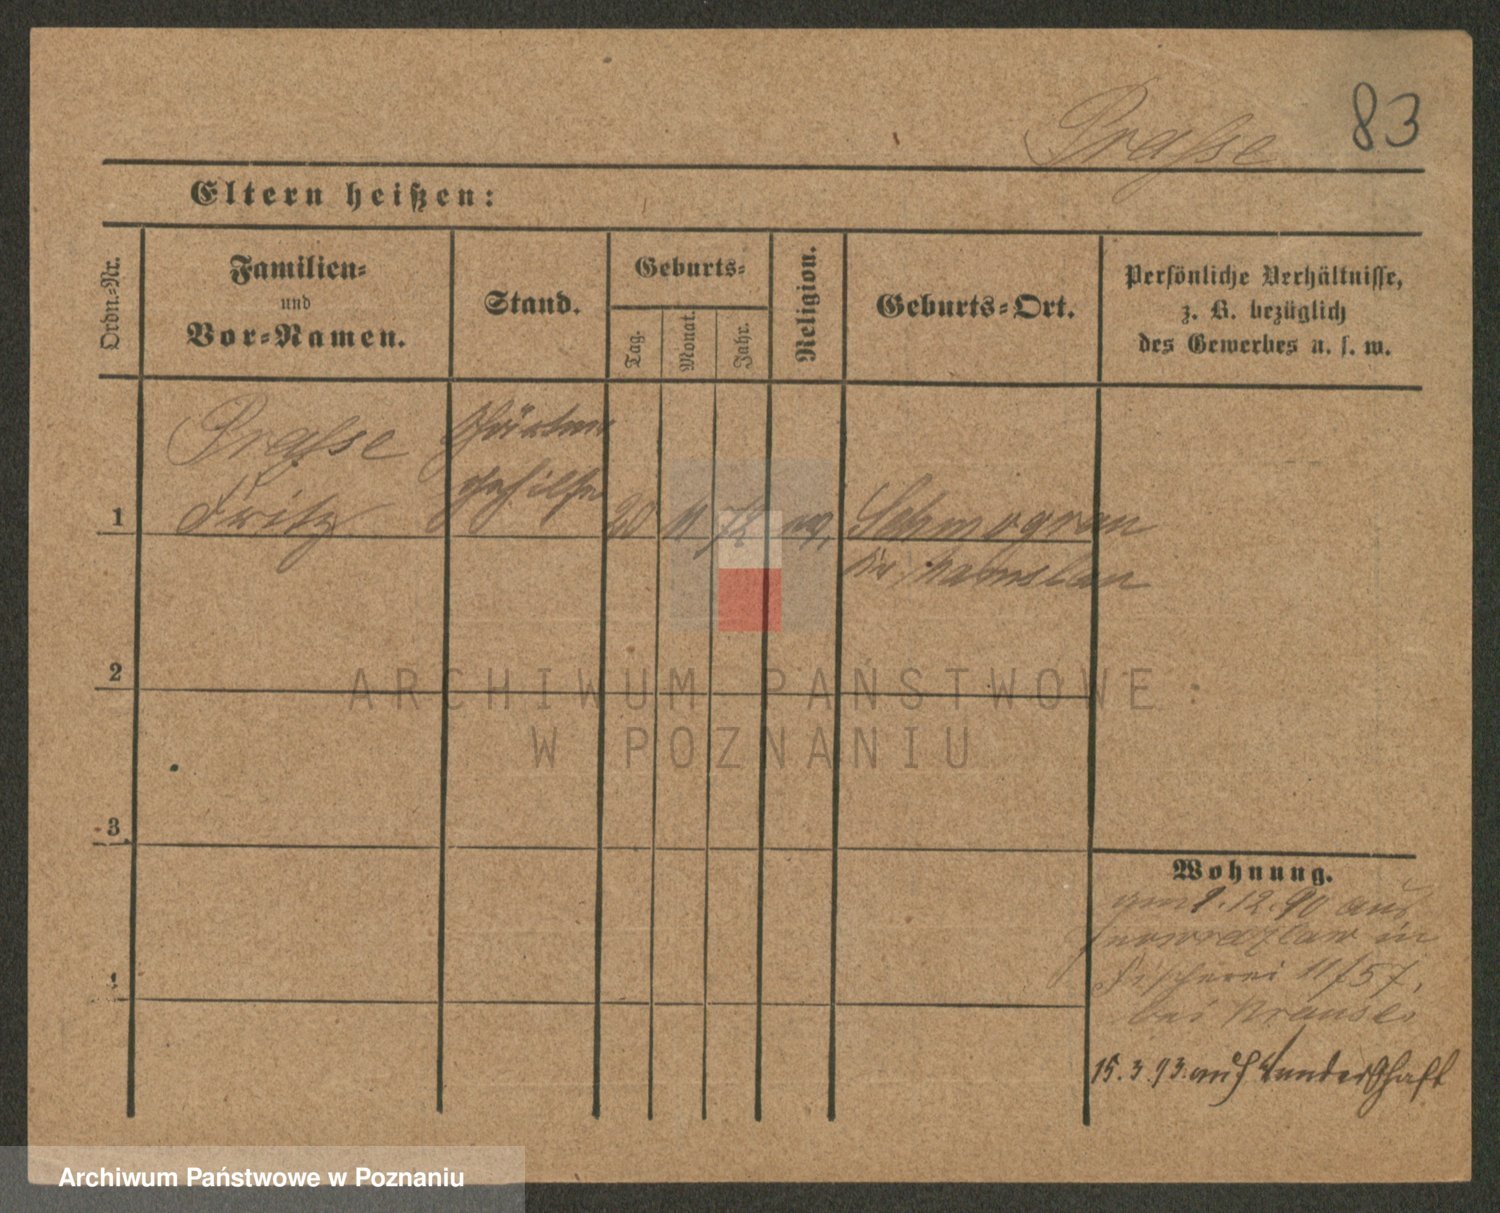 Prasse 83
Eltern heißen:
Ordn.=Nr.
Familien=
und
Vor=Namen.
Stand.
Geburts=
Tag.
Monat.
Jahr.
Religion.
Geburts=Ort.
Persönliche Verhältnisse,
z. B. bezüglich
des Gewerbes u. s. w.
Prasse
Fritz
Gärtner
gehilfe
1
20
11
72
Schmograu
Kr Namslau
2
3
4
Wohnung.
12.90 aus
Inowrazlaw in
Fischerei 11/57,
bei Krause
15.3.93 auf Wanderschaft
ARCHIWUM PAŃSTWOWE
W POZNANIU
Archiwum Państwowe w Poznaniu